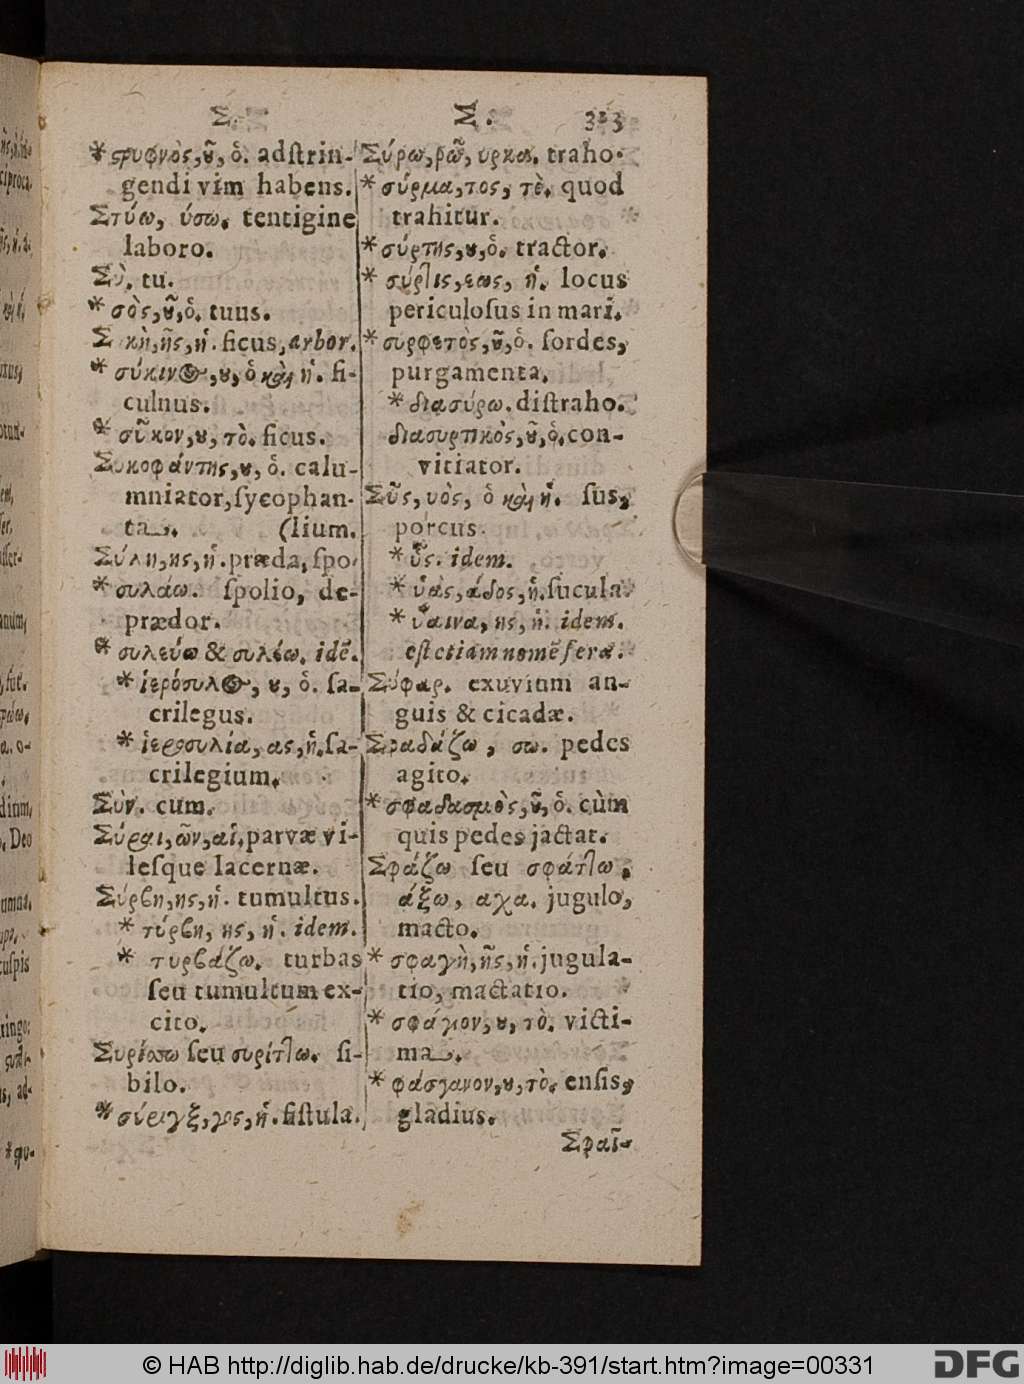 Σ. M. 323
* ςρυφνὸς,ȣ̃, ὁ. adſtrin-
gendi vim habens.
Στύω, ύσω. tentigine
laboro.
Σὺ. tu.
* σὸς,ȣ̃,ὁ. tuus.
Σ κῆ,ῆς,ἡ. ficus, arbor.
* σύκινος,ȣ,ὁ καὶ ἡ. fi-
culnus.
* σῦκον,ȣ, τὸ. ficus.
Συκοφάντης,ȣ, ὁ. calu-
mniator, ſycophan-
ta. (lium.
Σύλη,ης,ἡ. præda, ſpo-
* συλάω. ſpolio, de-
prædor.
* συλεύω & συλέω. idē.
* ἱερόσυλος, ȣ, ὁ. ſa-
crilegus.
* ἱεροσυλία, ας,ἡ. ſa-
crilegium.
Σὺν. cum.
Σύραι,ῶν,αἱ. parvæ vi-
leſque lacernæ.
Σύρβη,ης,ἡ. tumultus.
* τύρβη, ης, ἡ. idem.
* τυρβάζω. turbas
ſeu tumultum ex-
cito.
Συρίσσω ſeu συρίτ]ω. ſi-
bilo.
* σύριγξ,γος,ἡ. fiſtula.
Σύρω,ρῶ, υρκα. traho.
* σύρμα,τος, τὸ. quod
trahitur.
* σύρτης,ȣ,ὁ. tractor.
* σύρ]ις,εως, ἡ. locus
periculoſus in mari.
* συρφετὸς,ȣ̃,ὁ. ſordes,
purgamenta.
* διασύρω. diſtraho.
διασυρτικὸς,ȣ̃,ὁ. con-
vitiator.
Σῦς, υὸς, ὁ καὶ ἡ. ſus,
porcus.
* ὗς. idem.
* ὑὰς, άδος,ἡ. ſucula.
* ὕαινα, ης, ἡ. idem.
eſt etiam nomē feræ.
Σύφαρ. exuvium an-
guis & cicadæ.
Σφαδάζω, σω. pedes
agito.
* σφαδασμὸς,ȣ̃, ὁ. cùm
quis pedes jactat.
Σφάζω ſeu σφάτ]ω,
άξω, αχα. jugulo,
macto.
* σφαγὴ,ῆς,ἡ. jugula-
tio, mactatio.
* σφάγιον,ȣ, τὸ. victi-
ma.
* φάσγανον,ȣ,τὸ. enſis,
gladius.
Σφαῖ-
© HAB http://diglib.hab.de/drucke/kb-391/start.htm?image=00331
DFG